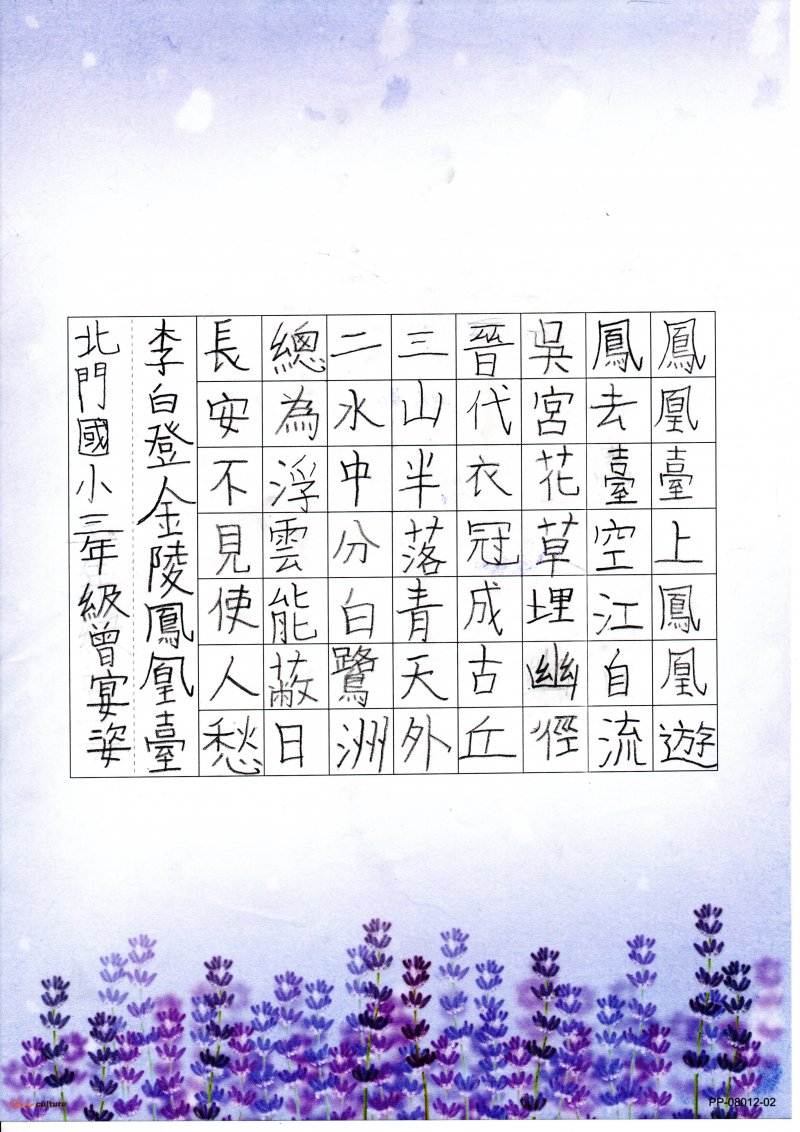 鳳凰臺上鳳凰遊
鳳去臺空江自流
吳宮花草埋幽徑
晉代衣冠成古丘
三山半落青天外
二水中分白鷺洲
總為浮雲能蔽日
長安不見使人愁
李白登金陵鳳凰臺
北門國小三年級曾宴姿
culture
PP-08012-02